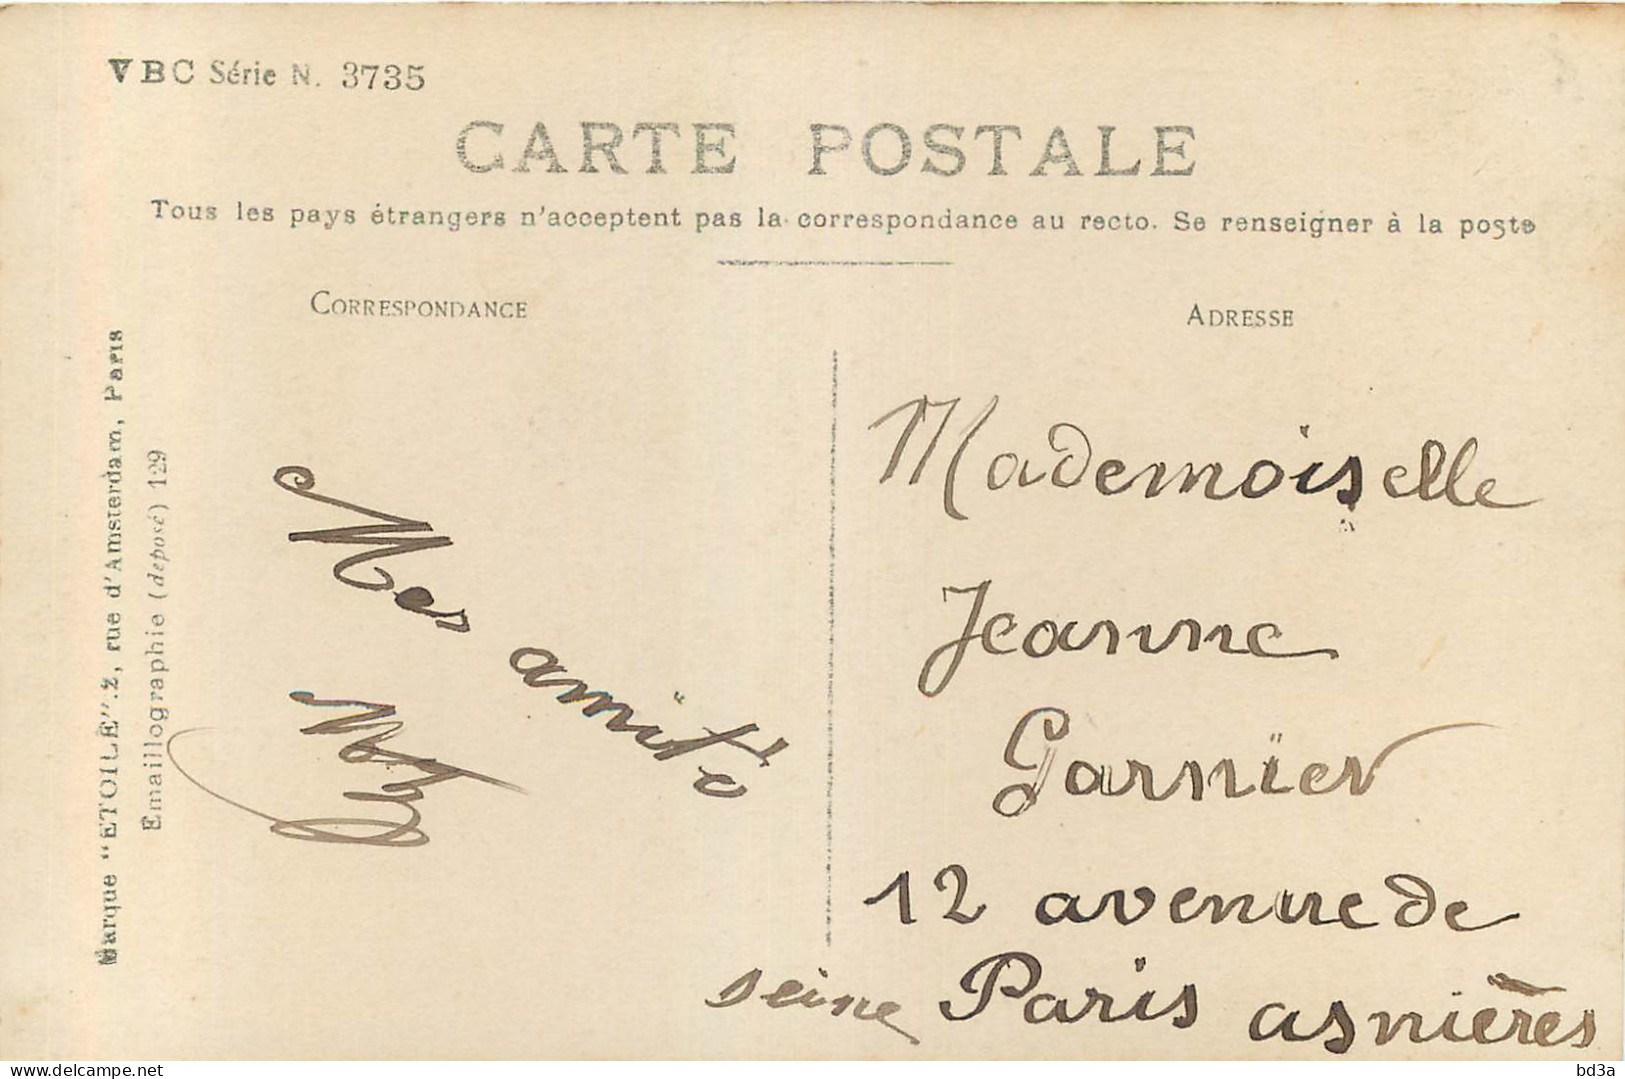 VBC Série N. 3735
CARTE POSTALE
Tous les pays étrangers n'acceptent pas la correspondance au recto. Se renseigner à la poste
CORRESPONDANCE
ADRESSE
Marque "ETOILE". 2, rue d'Amsterdam, Paris
Emaillographie (deposé) 129
Mes amitié
Mademoiselle
Jeanne
Garnier
12 avenue de
Paris asnières
seine
bd3a